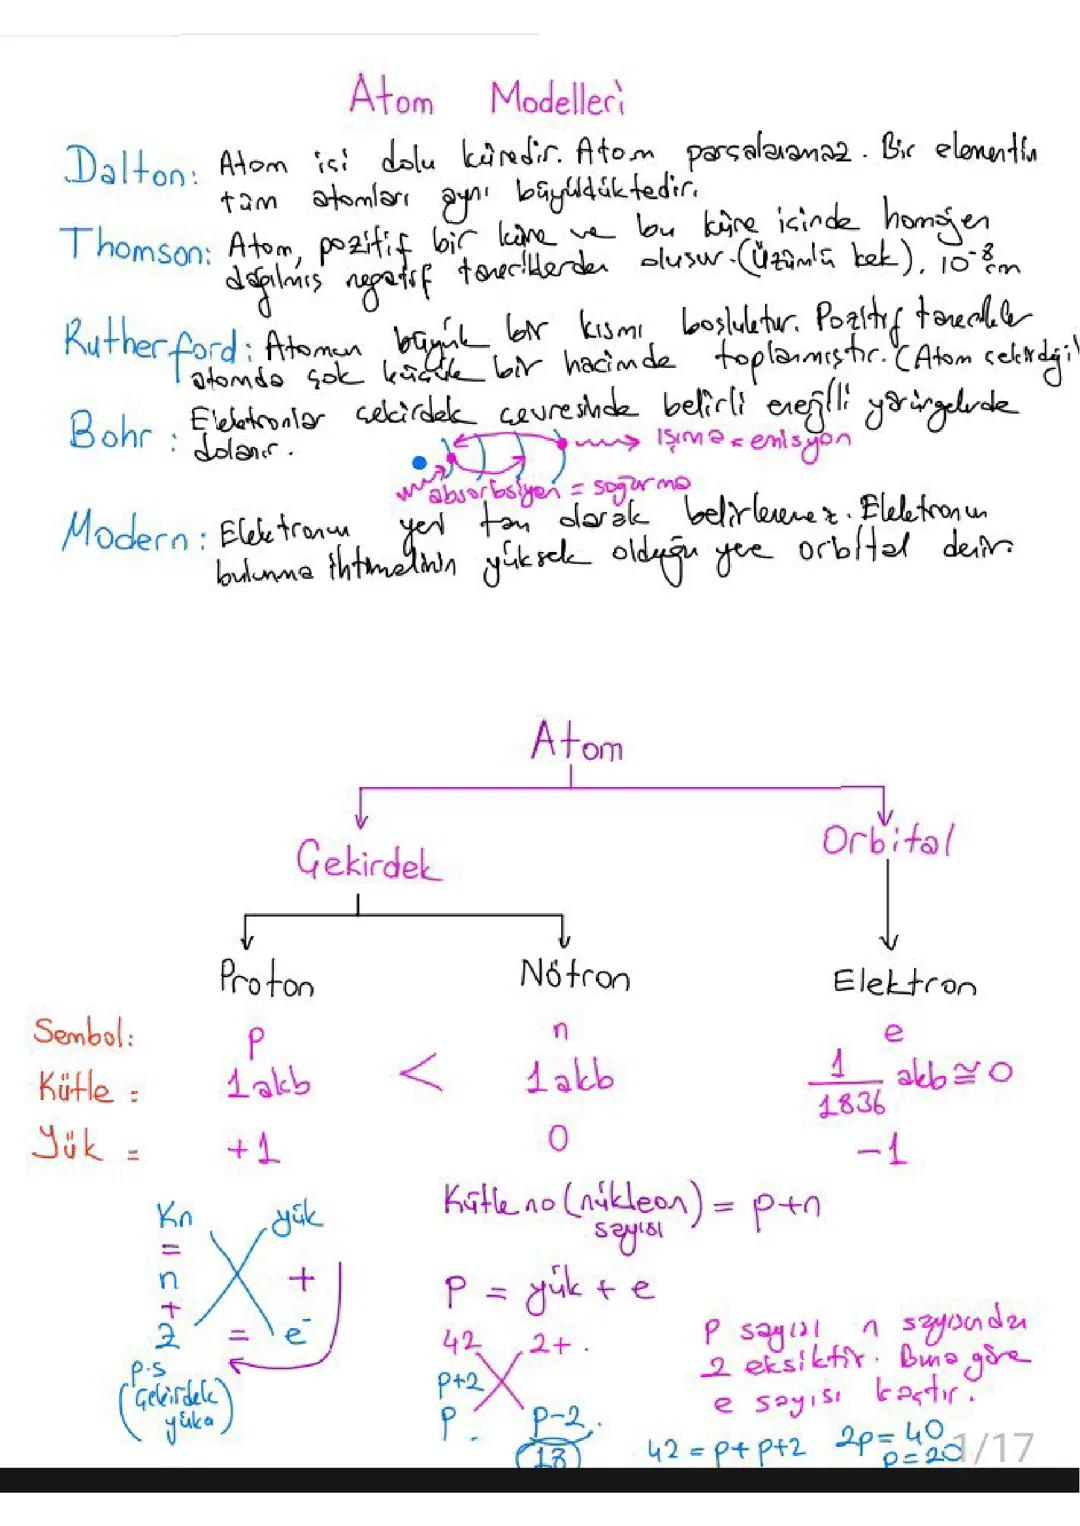 Atom Modelleri
Dalton: Atom içi dolu küredir. Atom parçalanamaz. Bir elementin
tüm atomları aynı büyüklüktedir.
Thomson: Atom, pozitif bir küre ve bu küre içinde homojen
dağılmış negatif taneciklerden oluşur. (Üzümlü kek). 10⁻⁸ cm
Rutherford: Atomun büyük bir kısmı boşluktur. Pozitif tanecikler
atomda çok küçük bir hacimde toplanmıştır. (Atom çekirdeği)
Bohr: Elektronlar çekirdek çevresinde belirli enerjili yörüngelerde
dolanır.
ışıma = emisyon
absorbsiyon = soğurma
Modern: Elektronun yeri tam olarak belirlenemez. Elektronun
bulunma ihtimalinin yüksek olduğu yere orbital denir.
Atom
Çekirdek Orbital
Proton Nötron Elektron
Sembol: p n e
Kütle: 1 akb < 1 akb 1/1836 akb ≅ 0
Yük = +1 0 -1
Kütle no (nükleon sayısı) = p+n
Kn yük
=
n +
+
z = e⁻
p.s
(Çekirdek
yükü)
p = yük + e
42 2+.
p+2
p. p-2.
18
p sayısı n sayısından
2 eksiktir. Buna göre
e sayısı kaçtır.
42 = p+p+2 2p = 40
p = 20
1/17